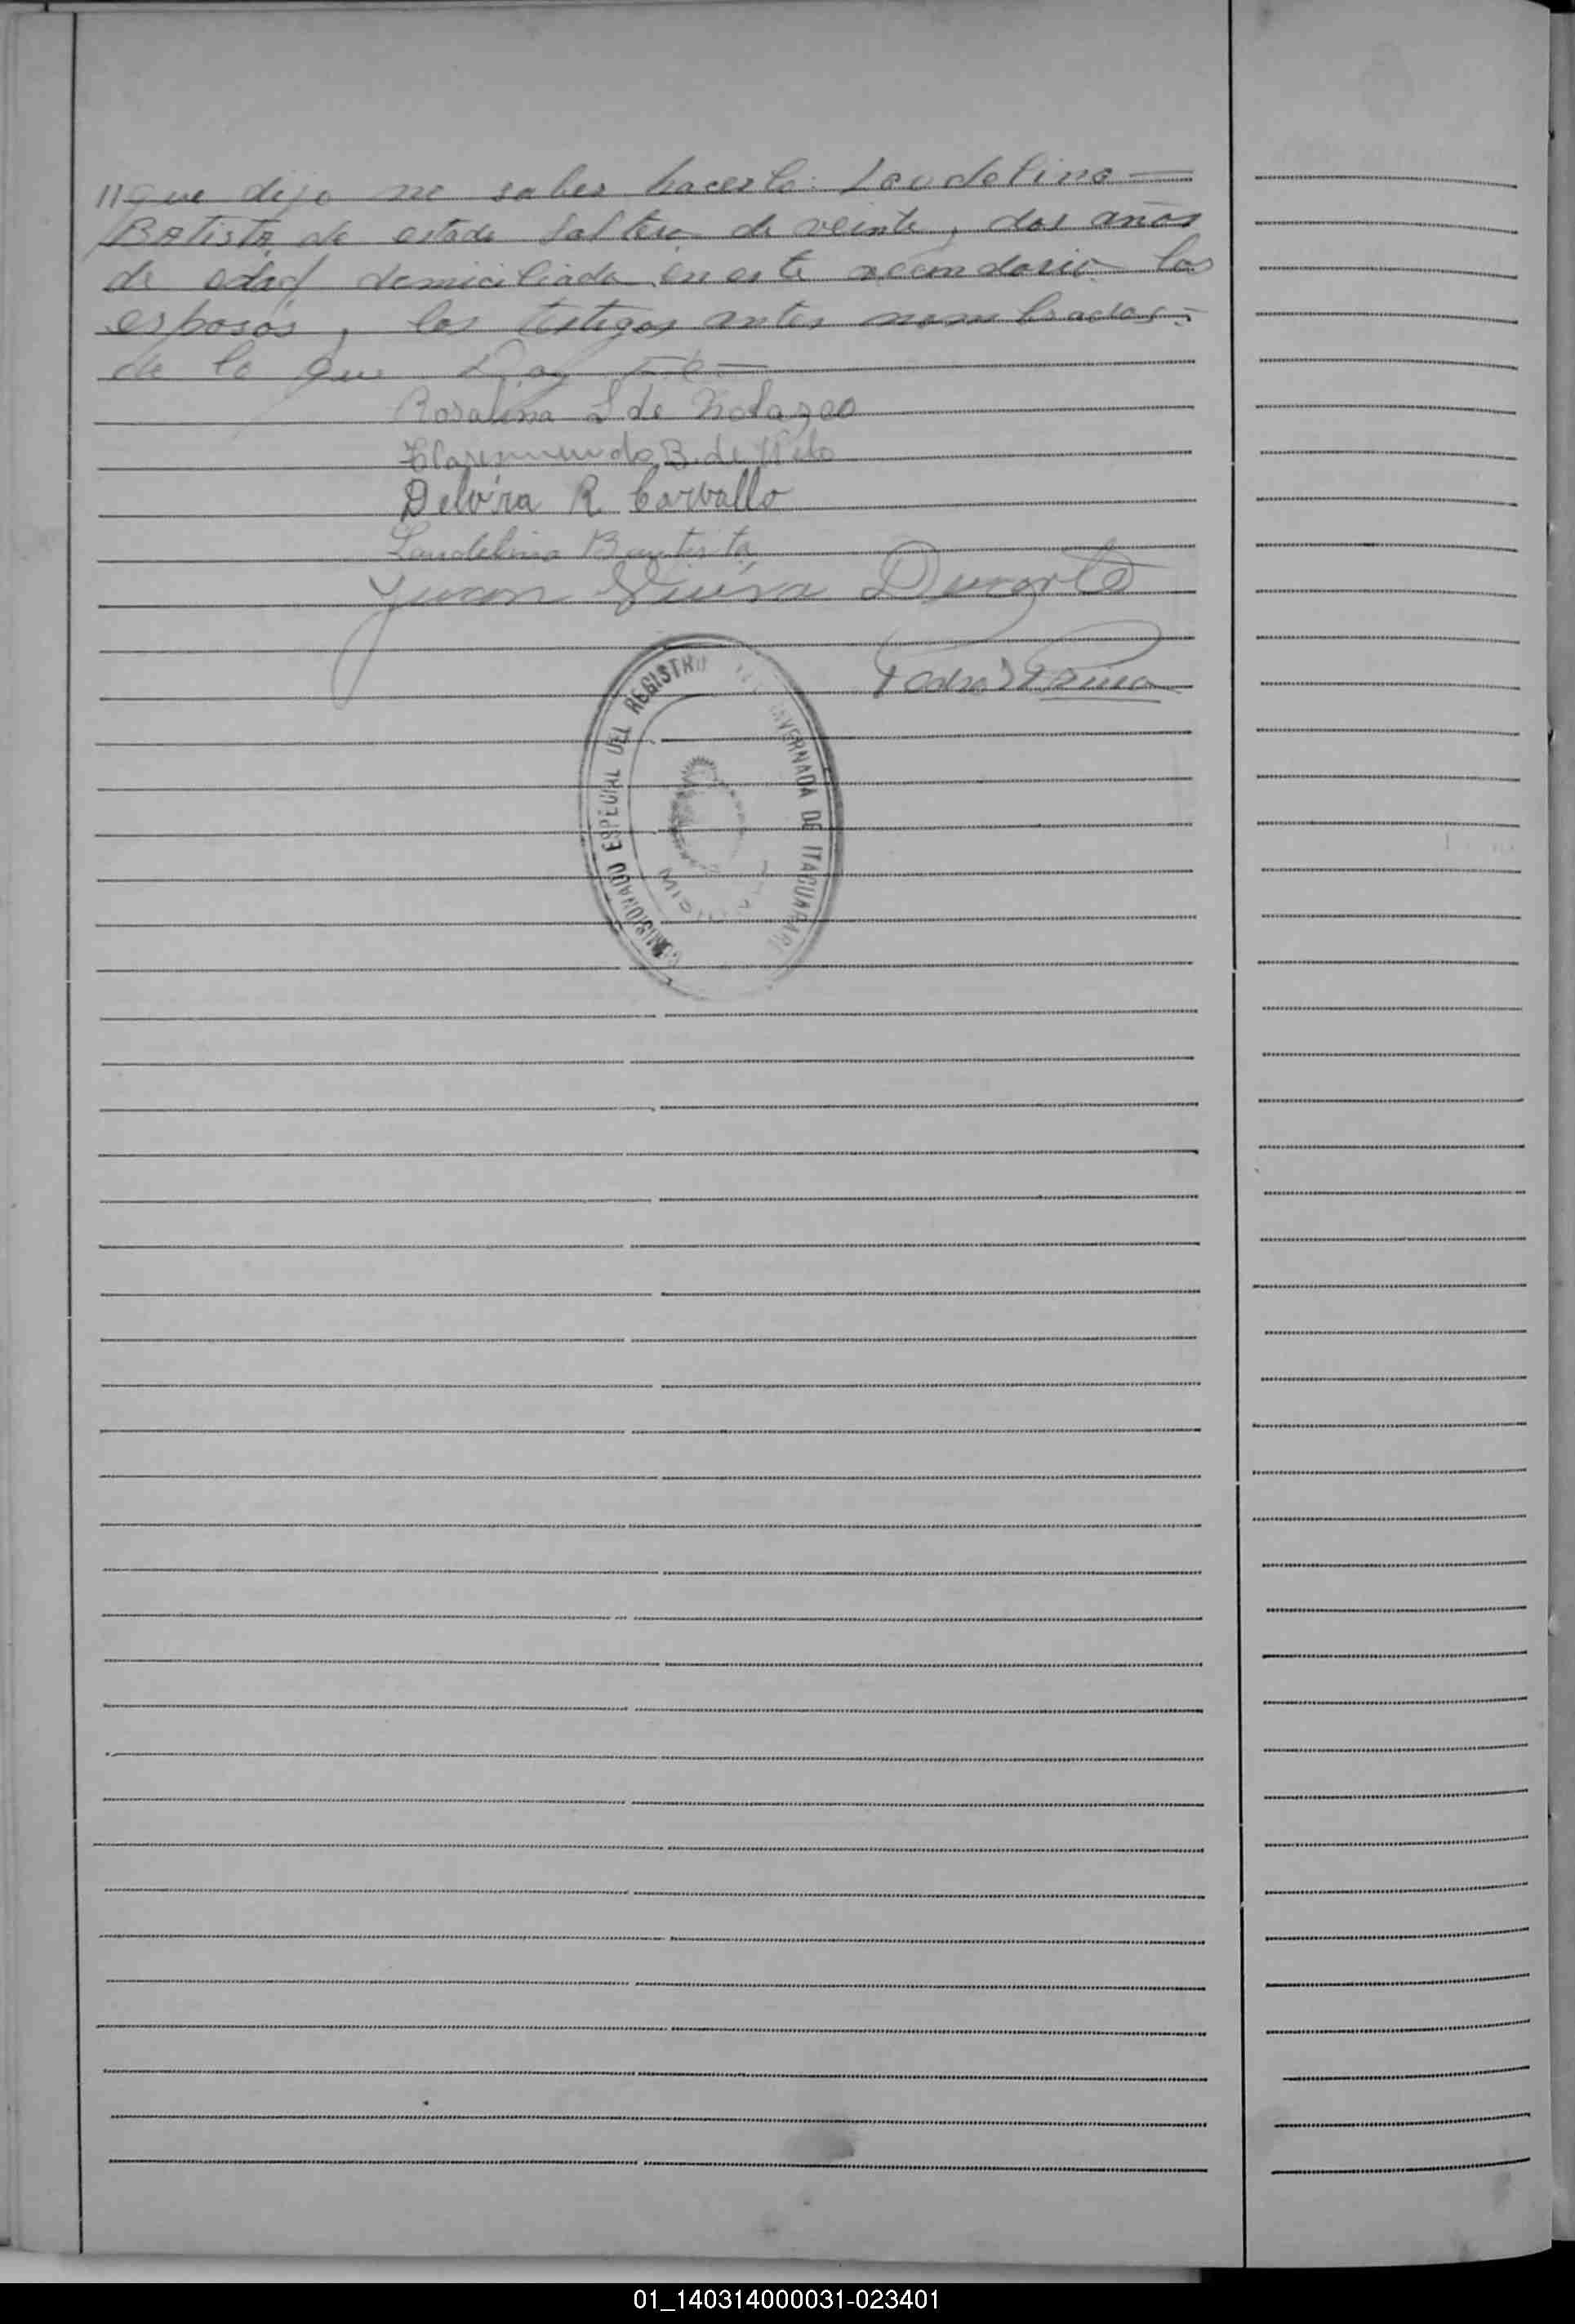 //que dijo no saber hacerlo: Laudelino —
Batista, de estado Soltero de veinte y dos años
de edad domiciliado en este vecindario los
esposos y los testigos antes nombrados =
de lo que Doy Fe —
Rosalina S de
B. de
Delvira R. Carvallo
Laudelino Bautista
Juan Duarte
Pedro
COMISIONADO ESPECIAL DEL REGISTRO
DE ITACUARARE
01_140314000031-023401